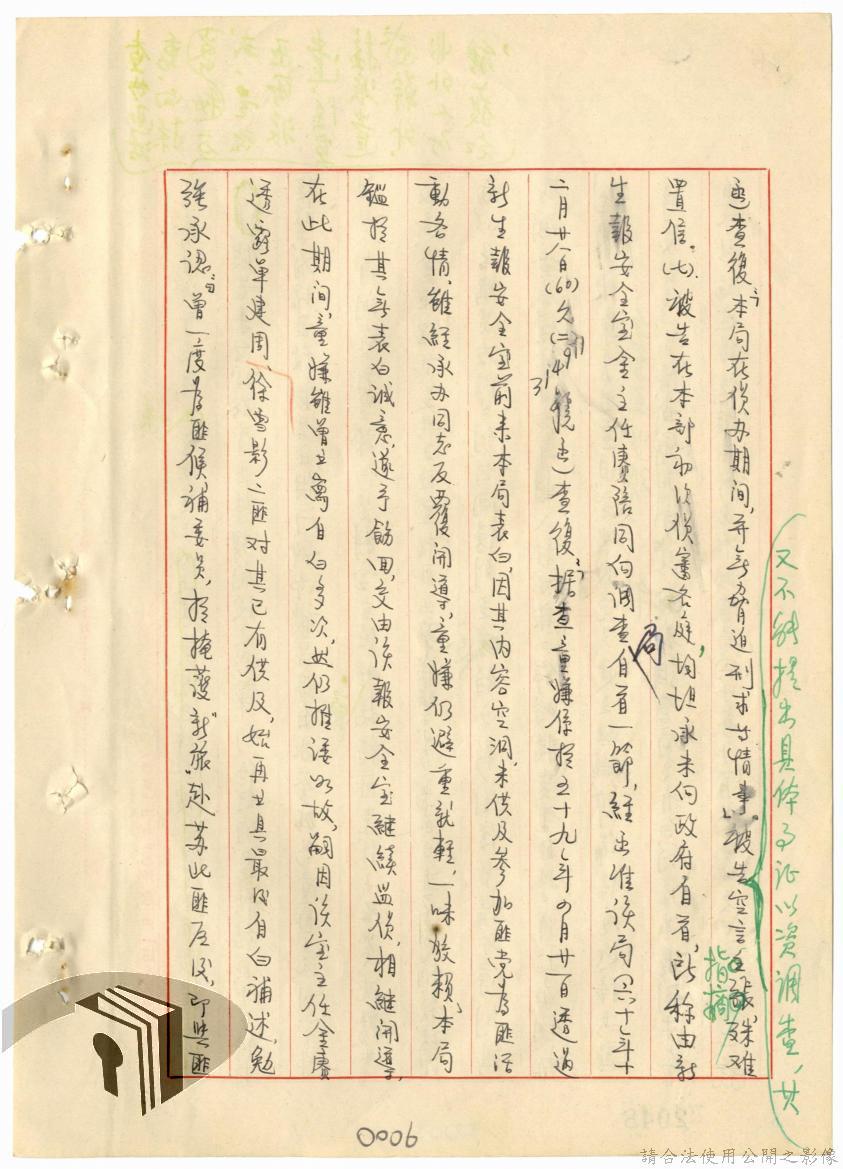 又不能提出具体事证以资調查，其
函查復：「本局在偵办期間，并無脅迫刑求等情事」。被告空言指摘，殊难
置信。(七)、被告在本部初次偵審各庭，均坦承未向政府自首，所称由新
生報安全室金主任賡陪同向調查局自首一節，經函准该局(六十年十
二月廿八日(60)允(二) 號函)查復：「据查童嫌係於五十九年四月廿一日透過
新生報安全室前来本局表白，因其内容空洞，未供及参加匪党為匪活
動各情，雖經承办同志反覆開導，童嫌仍避重就輕，一味放賴，本局
鑑於其無表白誠意，遂予飭回，交由该報安全室継續监偵，相継開導，
在此期間，童嫌雖曾書寫自白多次，然仍推诿如故，嗣因该室主任金賡
透露單建周、徐雪影二匪对其已有供及，始再出具最後自白補述，勉
強承認：曾一度為匪候補委員，於掩護「新旅」赴苏北匪区後，即與匪
0006
請合法使用公開之影像